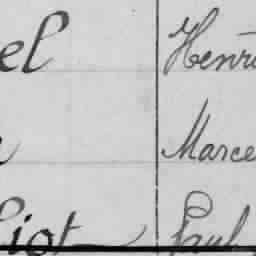 el Henri
Marce
iot Paul